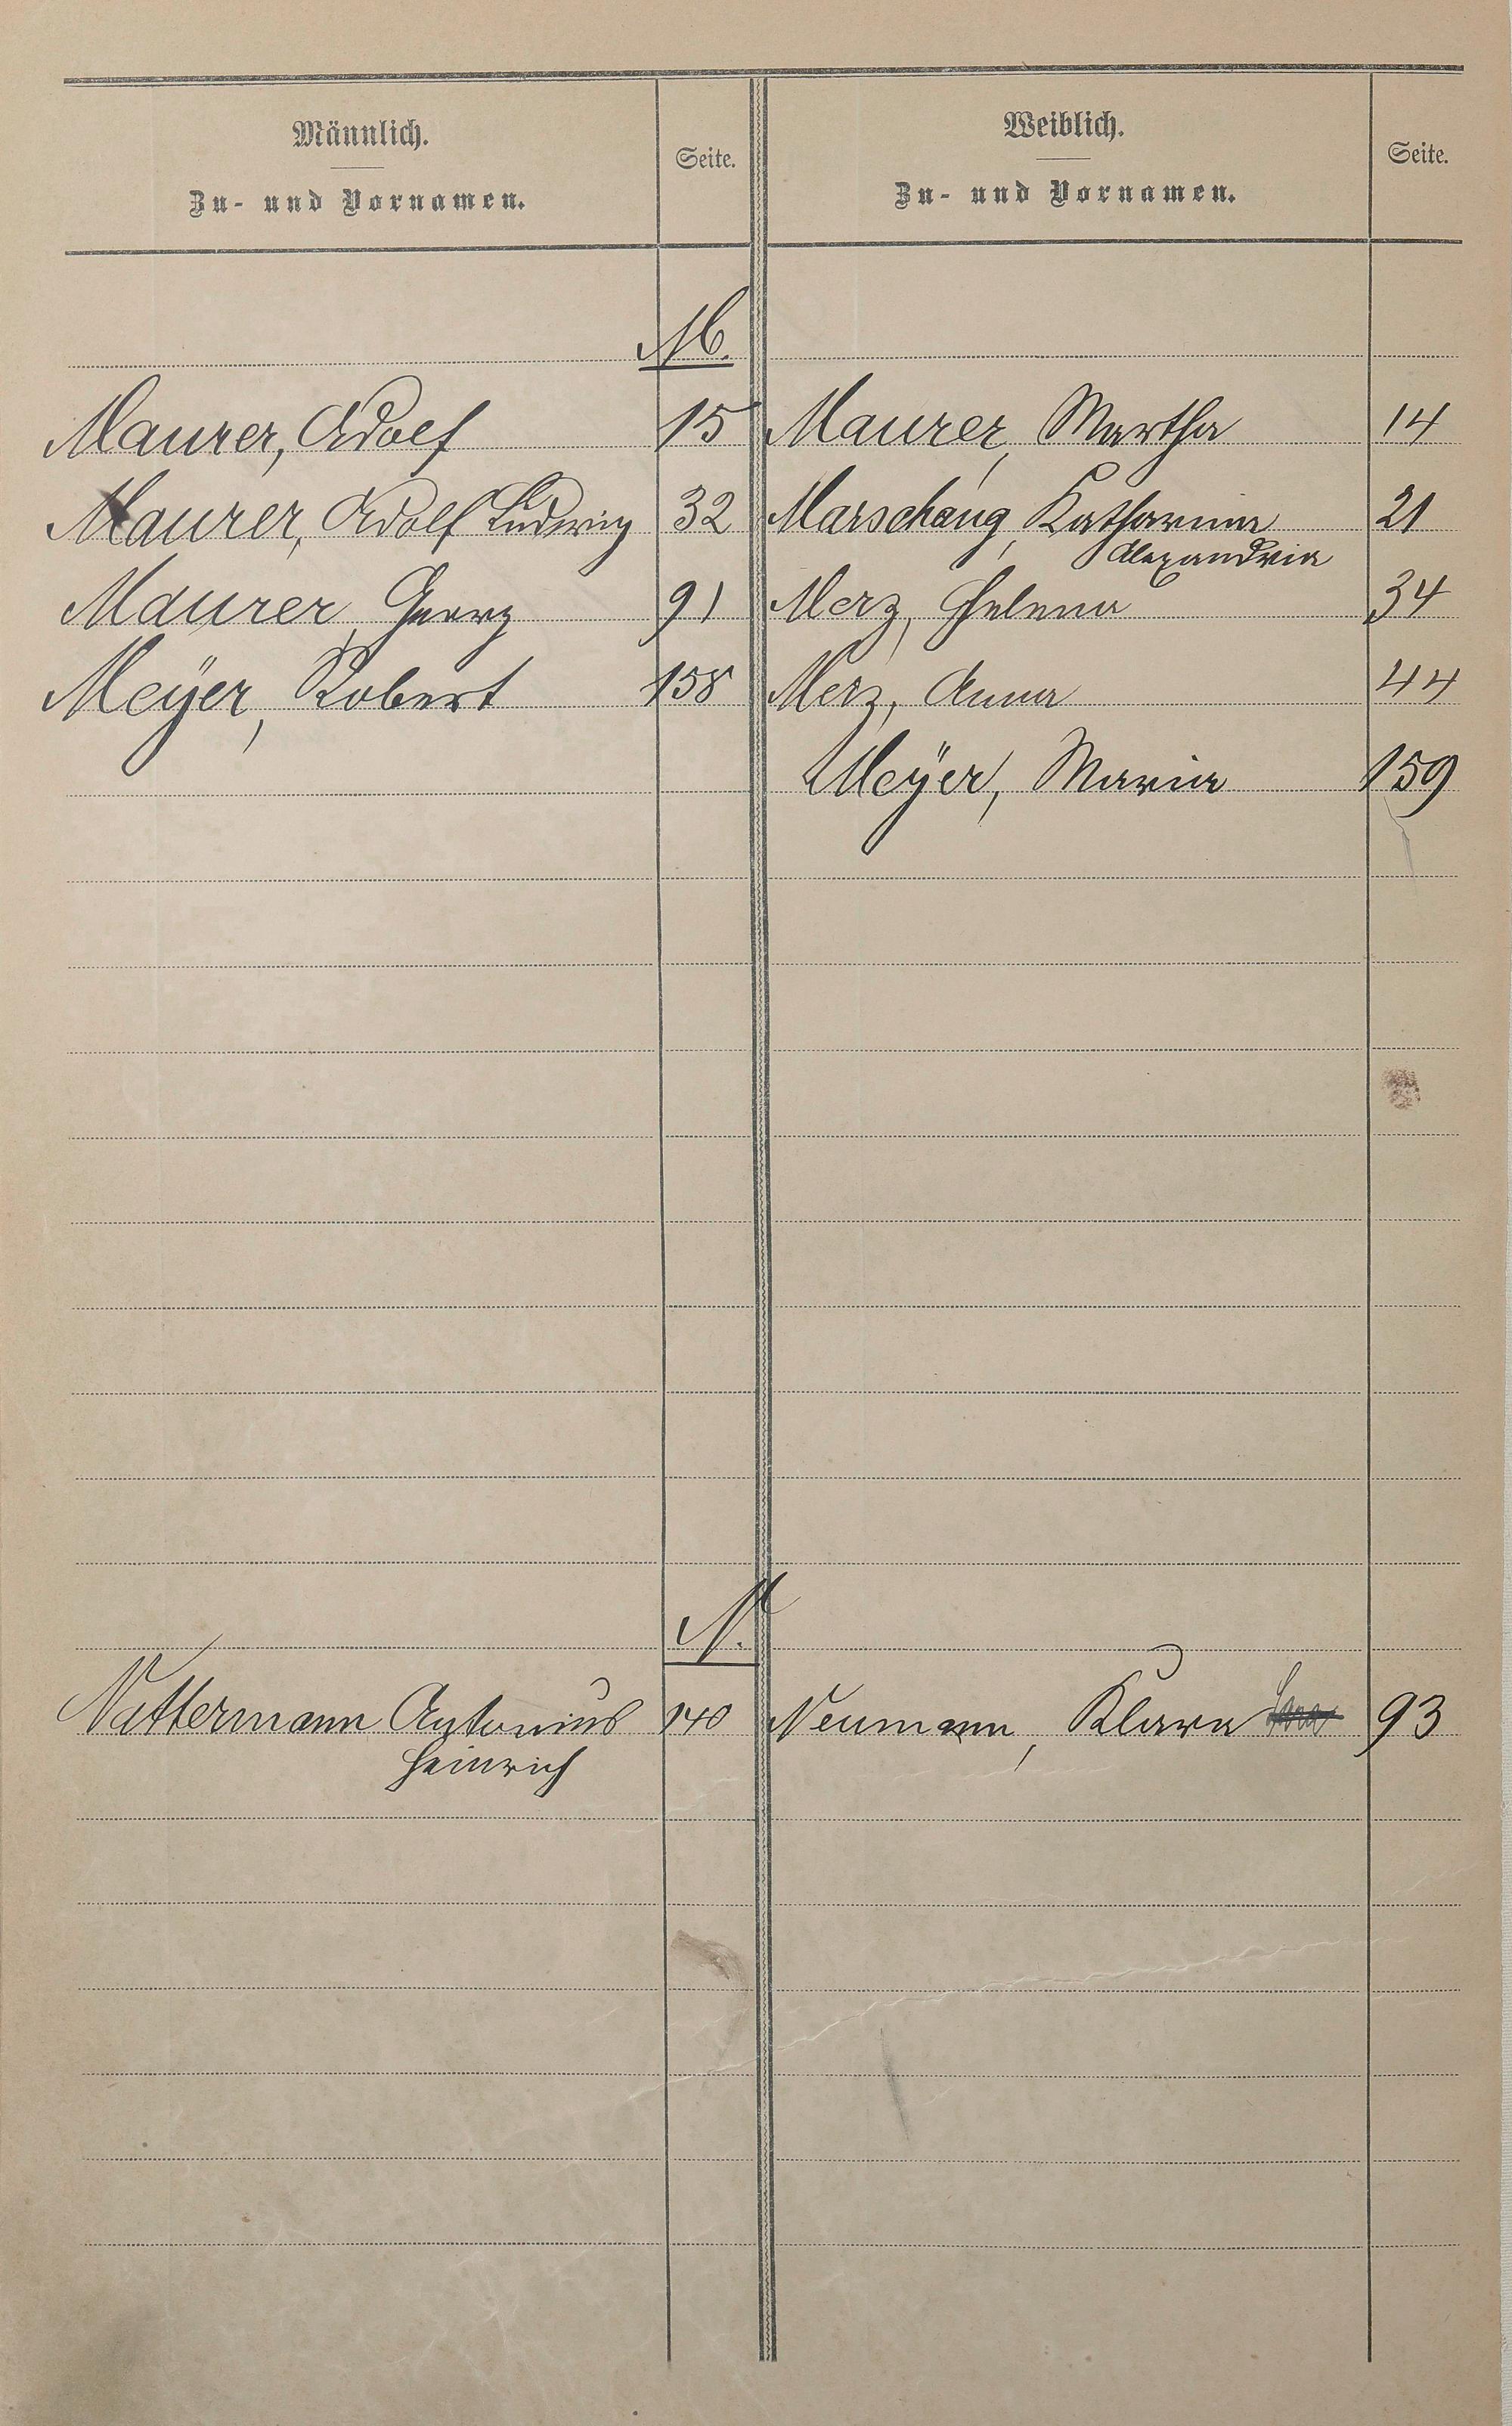 Männlich.
Zu- und Vornamen.
Seite.
Weiblich.
Zu- und Vornamen.
Seite.
M.
Maurer, Adolf 15 Maurer, Martha 14
Maurer, Adolf Ludwig 32 Marschang, Katharina 21
Alexandria
Maurer, Georg 91 Merz, Helena 34
Meÿer, Robert 158 Merz, Anna 44
Meÿer, Maria 159
N.
Nattermann Antonius 140 Neumann, Klara Sara 93
Heinrich